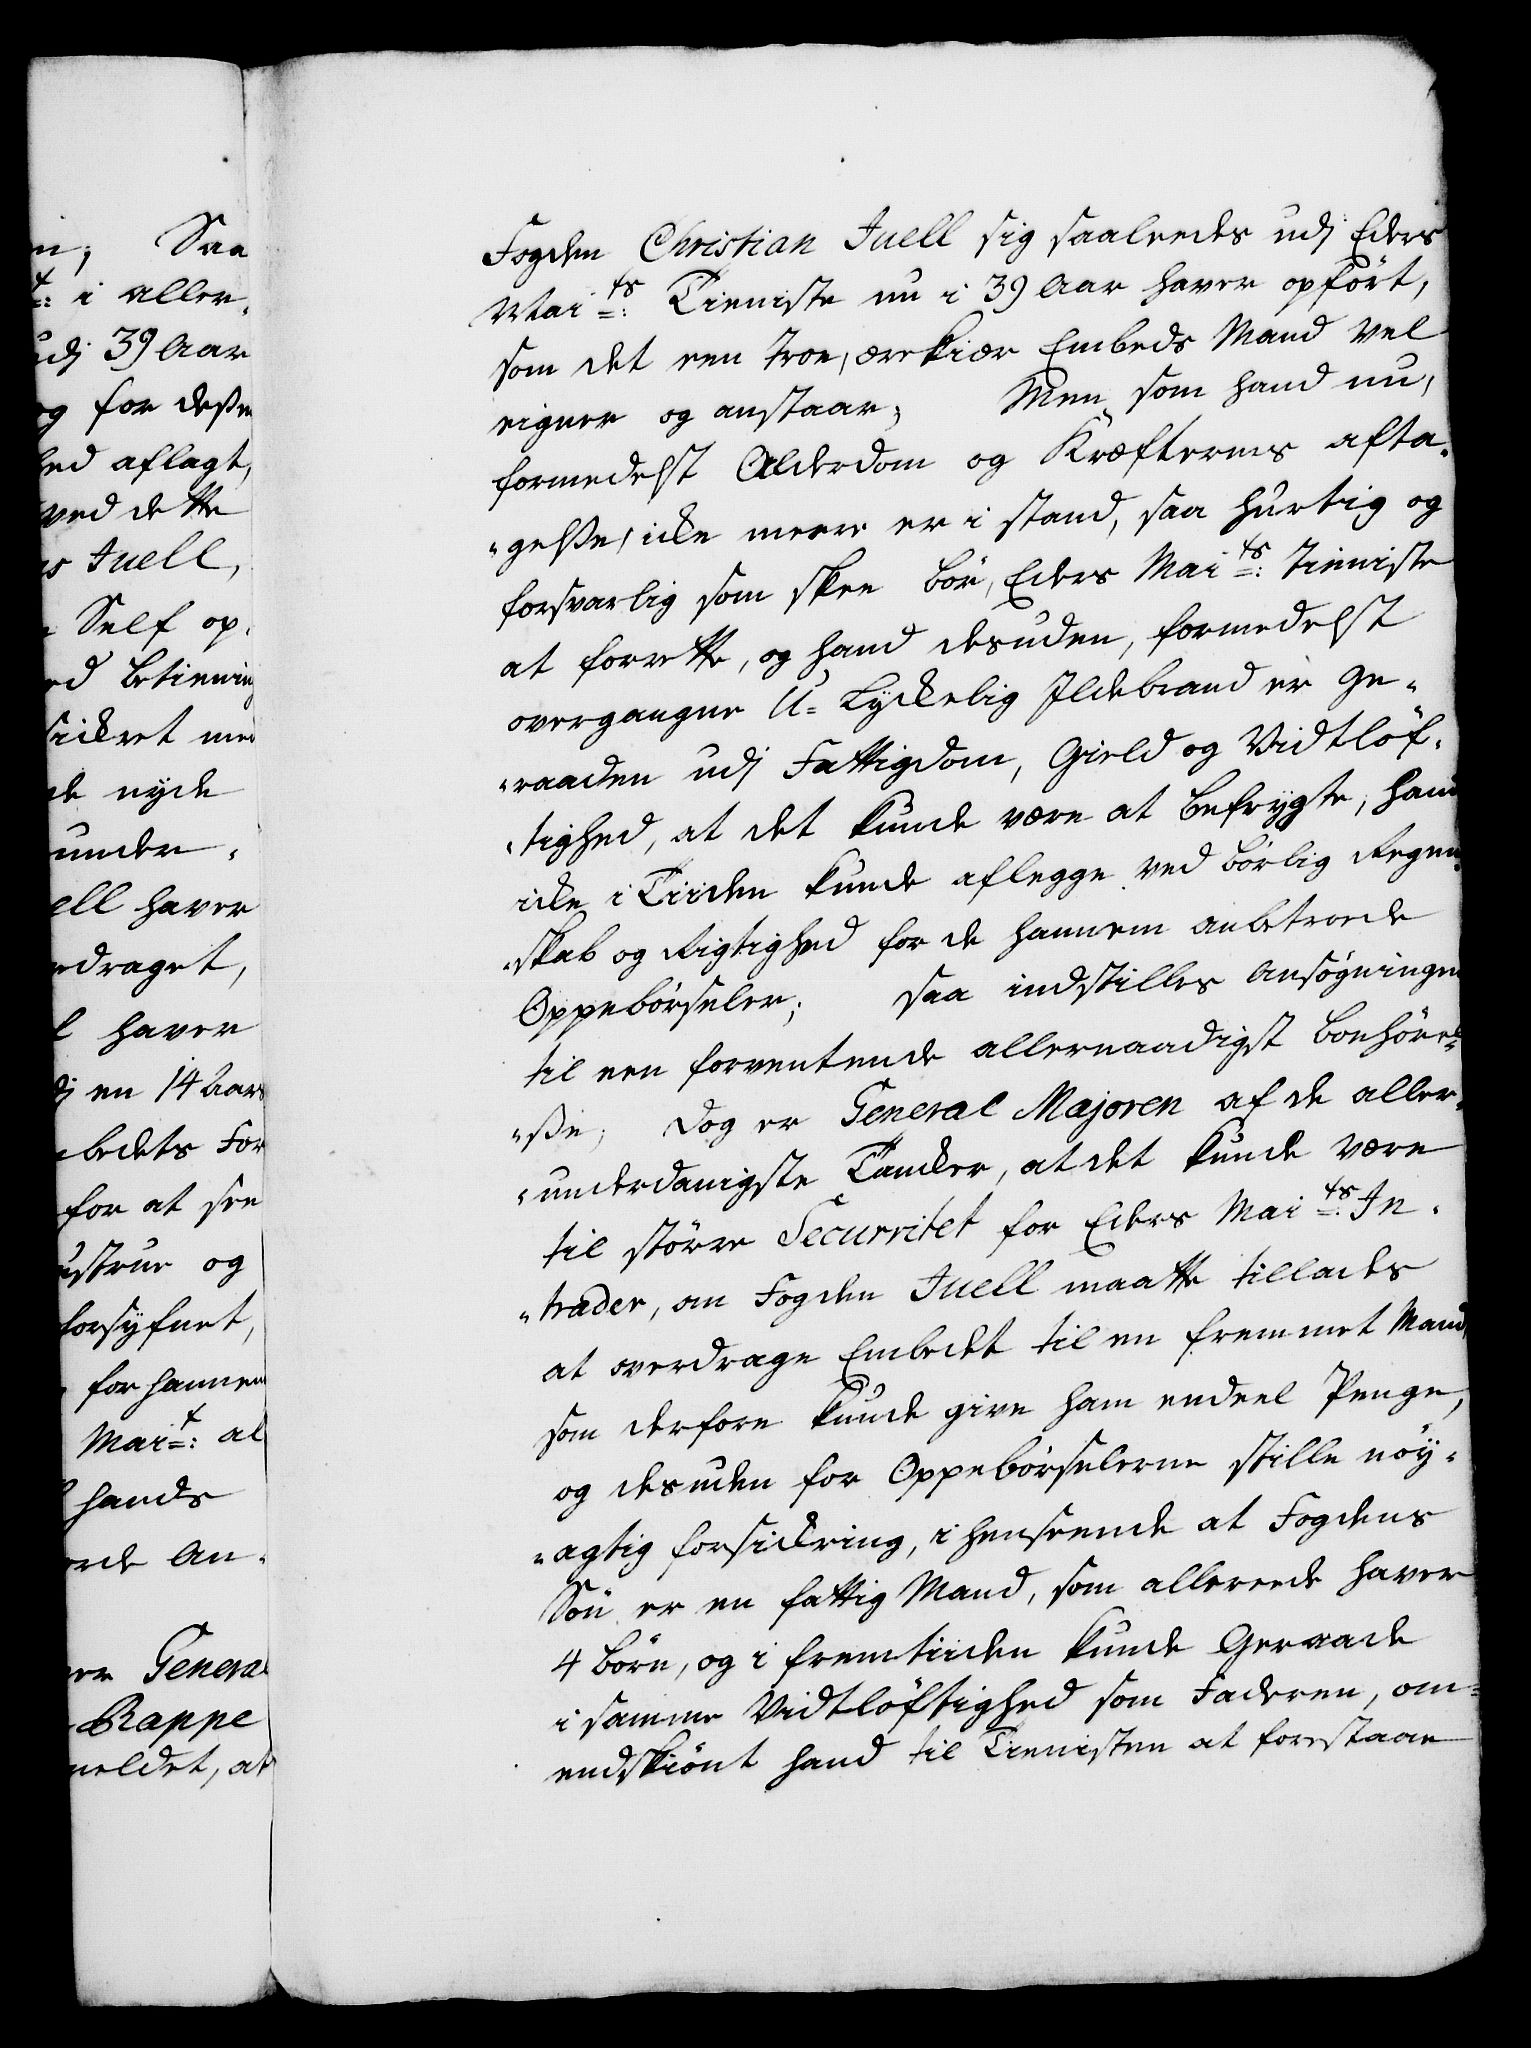 n; Saa
t: i aller¬
udj 39 Aar
og for deßen
hed aflagt,
ved dette
s Juell,
Self op¬
ed Betiening
sickret med
de nyde
under¬
ell haver
edraget,
l haver
dj en 14 Aars
bedets For
for at see
ustrue og
forsyfnet,
for hannem
Mait: al
hands
rde An¬
er General
Rappe
meldet, at
Fogden Christian Juell sig saaledes udj Eders
Maits: Tieniste nu i 39 Aar haver opført,
som det een Troe, ærekiær Embeds Mand vel
eigner og anstaar; Men som hand nu,
formedelst Alderdom og Kræfternes afta¬
gelße, icke meere er i stand, saa hurtig og
forsvarlig som skee bör, Eders Maits: Tieniste
at forrette, og hand desuden, formedelst
overgangne U-Lyckelig Ildebrand er Ge¬
raaden udj Fattigdom, Gield og Vidtløf¬
tighed, at det kunde være at befrygte, hand
icke i Tiiden kunde aflegge ved børlig Regen¬
skab og Rigtighed for de hannem anbetroede
Oppebørseler; saa indstilles Ansøgningen
til een forventende allernaadigst bønhørel¬
ße; Dog er General Majoren af de aller¬
underdanigste Tancker, at det kunde være
til større Securritet for Eders Maits: In¬
trader, om Fogden Juell maatte tillades
at overdrage Embedet til en fremmet Mand,
som derfore kunde give ham endeel Penge,
og desuden for Oppebørselerne stille nøy¬
agtig forsickring, i henseende at Fogdens
Søn er en fattig Mand, som allereede haver
4 børn, og i fremtiiden kunde Geraade
i samme Vidtløftighed som Faderen, om¬
endskiønt hand til Tienisten at forestaae